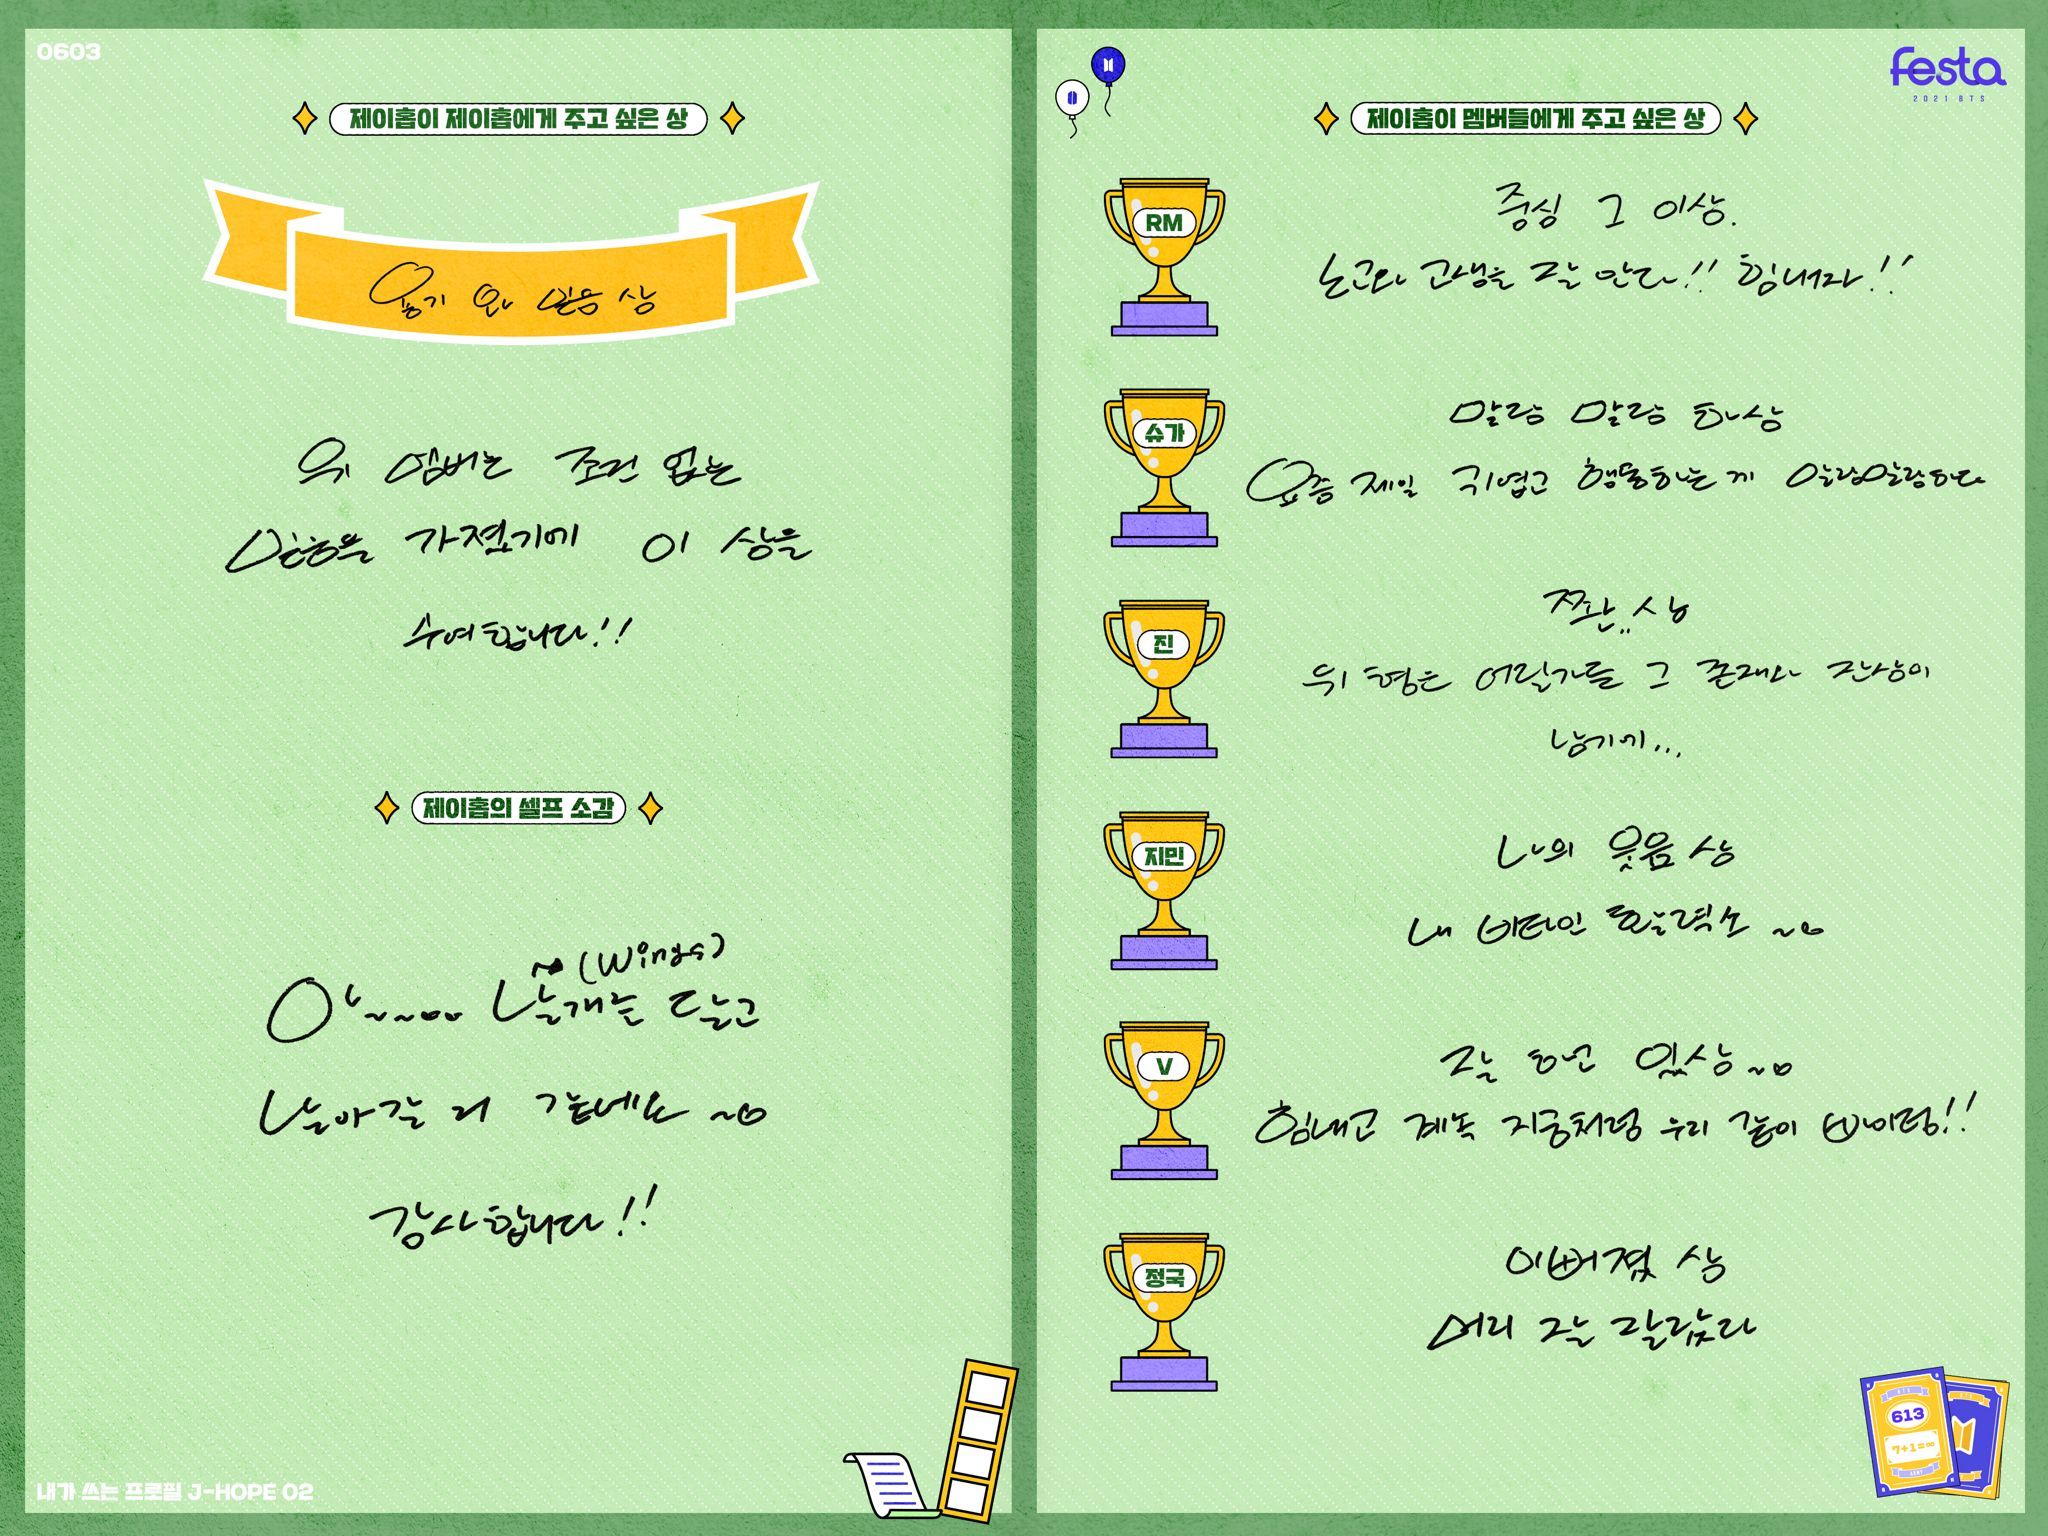 0603
제이홉이 제이홉에게 주고 싶은 상
용기 와 믿음 상
위 멤버는 조건 없는
믿음을 가졌기에 이 상을
수여합니다!!
제이홉의 셀프 소감
아~~.... 날개를 달고
(Wings)
날아갈 거 같네요~
감사합니다!!
내가 쓰는 프로필 J-HOPE 02
festa
2021 BTS
제이홉이 멤버들에게 주고 싶은 상
RM
중심 그 이상.
노고와 고생을 잘 안다!! 힘내자!!
슈가
말랑 말랑 해상
요즘 제일 귀엽고 행동하는게 말랑말랑하다
진
짠..상
위 형은 어릴가들 그 존재와 잔상이
남기에...
지민
나의 웃음 상
내 비타민 활력소~
V
잘 하년 있상~
힘내고 계속 지금처럼 우리 같이 화이팅!!
정국
이뻐졌 상
머리 잘 잘랐다
613
7+1=∞